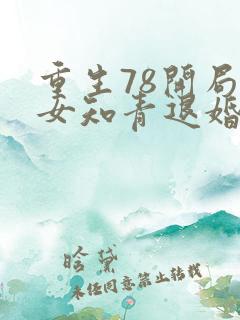 重生78开局
女知青退婚
晗黛
未经同意禁止转载